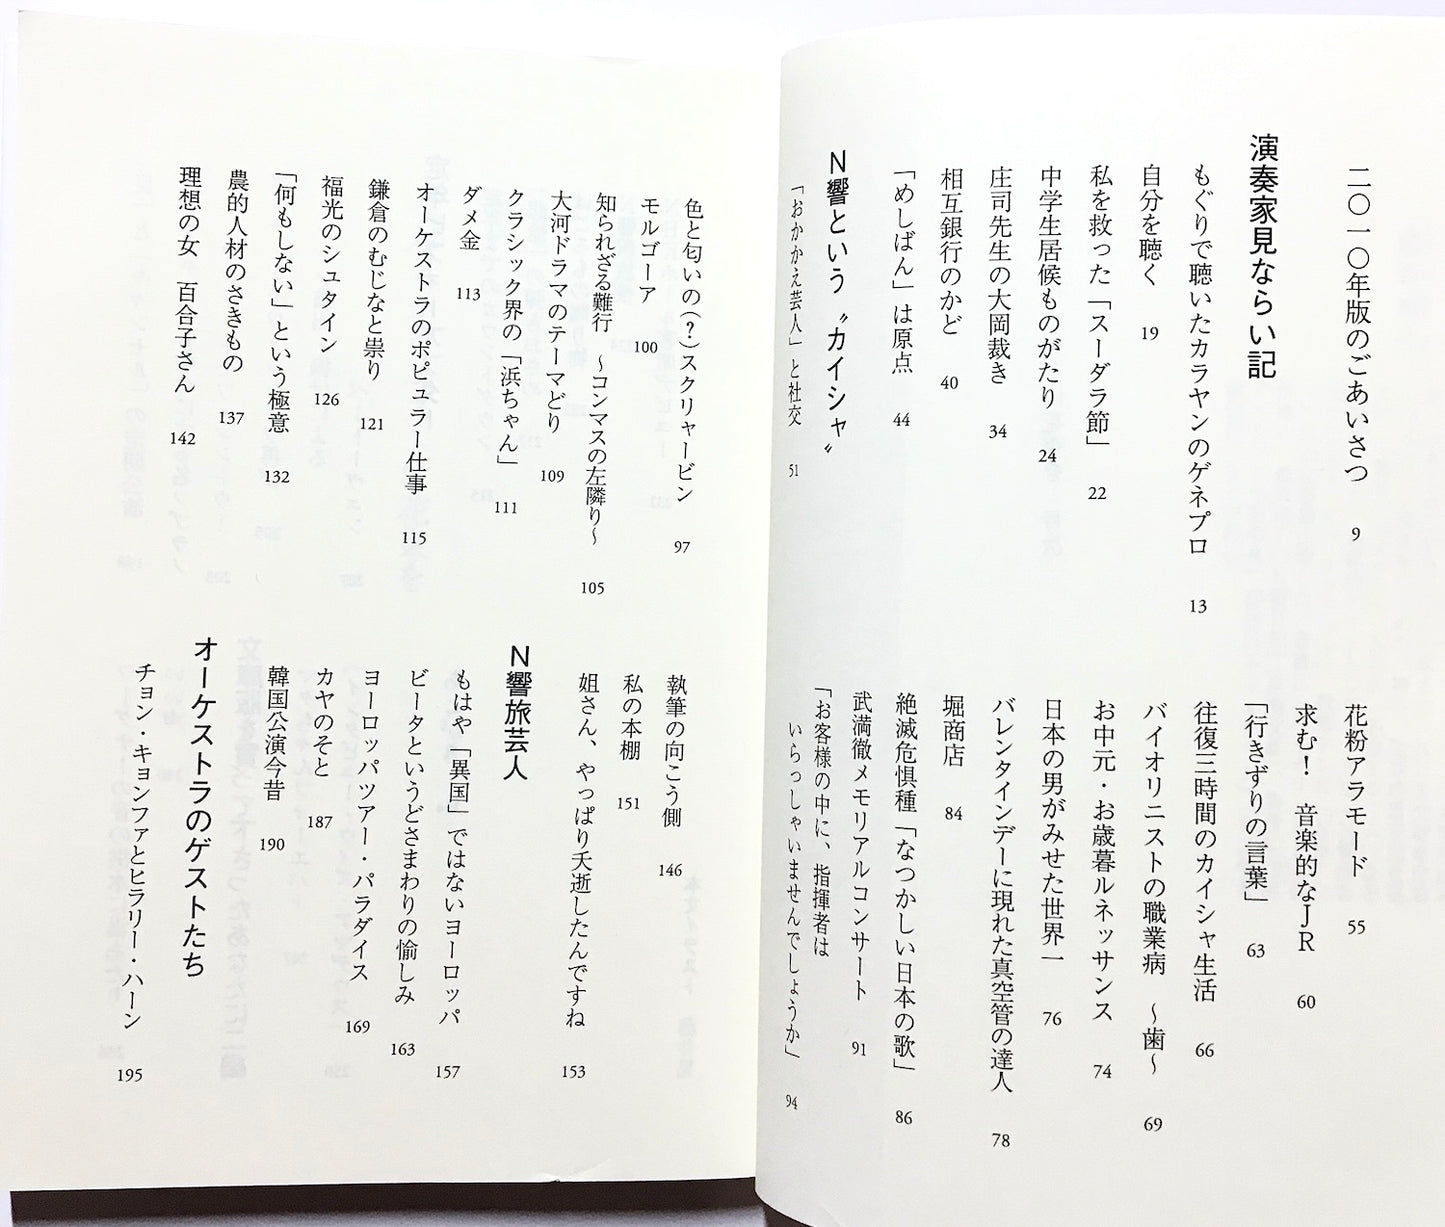 二〇一〇年版のごあいさつ 9
演奏家見ならい記
もぐりで聴いたカラヤンのゲネプロ 13
自分を聴く 19
私を救った「スーダラ節」 22
中学生居候ものがたり 24
庄司先生の大岡裁き 34
相互銀行のかど 40
「めしばん」は原点 44
N響という〝カイシャ〟
「おかかえ芸人」と社交 51
花粉アラモード 55
求む! 音楽的なJR 60
「行きずりの言葉」 63
往復三時間のカイシャ生活 66
バイオリニストの職業病 〜歯〜 69
お中元・お歳暮ルネッサンス 74
日本の男がみせた世界一 76
バレンタインデーに現れた真空管の達人 78
堀商店 84
絶滅危惧種「なつかしい日本の歌」 86
武満徹メモリアルコンサート 91
「お客様の中に、指揮者は
いらっしゃいませんでしょうか」 94
色と匂いの(?)スクリャービン 97
モルゴーア 100
知られざる難行 〜コンマスの左隣り〜 105
大河ドラマのテーマどり 109
クラシック界の「浜ちゃん」 111
ダメ金 113
オーケストラのポピュラー仕事 115
鎌倉のむじなと祟り 121
福光のシュタイン 126
「何もしない」という極意 132
農的人材のさきもの 137
理想の女 百合子さん 142
執筆の向こう側 146
私の本棚 151
姐さん、やっぱり夭逝したんですね 153
N響旅芸人
もはや「異国」ではないヨーロッパ 157
ビータというどさまわりの愉しみ 163
ヨーロッパツアー・パラダイス 169
カヤのそと 187
韓国公演今昔 190
オーケストラのゲストたち
チョン・キョンファとヒラリー・ハーン 195